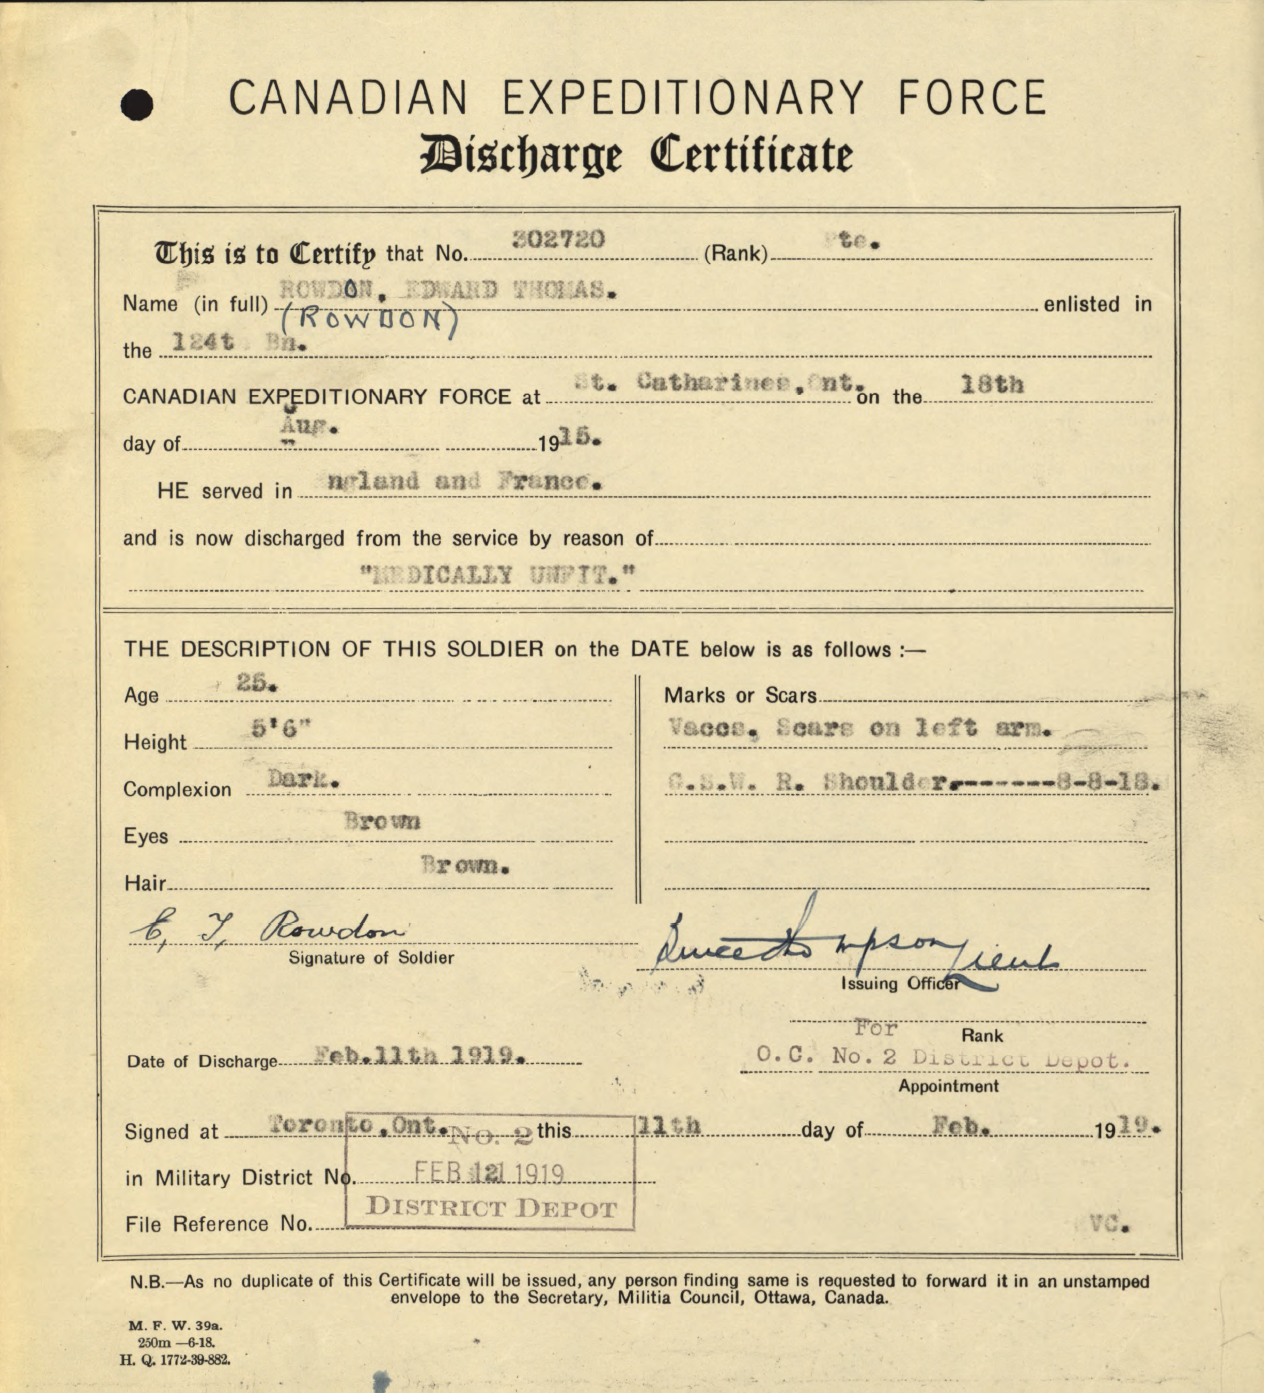 CANADIAN EXPEDITIONARY FORCE
Discharge Certificate
This is to Certify that No. 302720 (Rank) Pte.
Name (in full) ROWDON, EDWARD THOMAS. enlisted in
(ROWDON)
the 124t Bn.
CANADIAN EXPEDITIONARY FORCE at St. Catharines, Ont. on the 18th
day of Aug. 1915.
HE served in ngland and France.
and is now discharged from the service by reason of
"MEDICALLY UNFIT."
THE DESCRIPTION OF THIS SOLDIER on the DATE below is as follows :—
Age 25.
Height 5'6"
Complexion Dark.
Eyes Brown
Hair Brown.
Marks or Scars
Vaccs. Scars on left arm.
G.S.W. R. Shoulder.-------8-8-18.
E. T. Rowdon
Signature of Soldier
Thompson Lieut
Issuing Officer
For Rank
O.C. No. 2 District Depot.
Appointment
Date of Discharge Feb.11th 1919.
Signed at Toronto, Ont. this 11th day of Feb. 1919.
in Military District No.
File Reference No.
No. 2
FEB 12 1919
DISTRICT DEPOT
VC.
N.B.—As no duplicate of this Certificate will be issued, any person finding same is requested to forward it in an unstamped
envelope to the Secretary, Militia Council, Ottawa, Canada.
M. F. W. 39a.
250m —6-18.
H. Q. 1772-39-882.